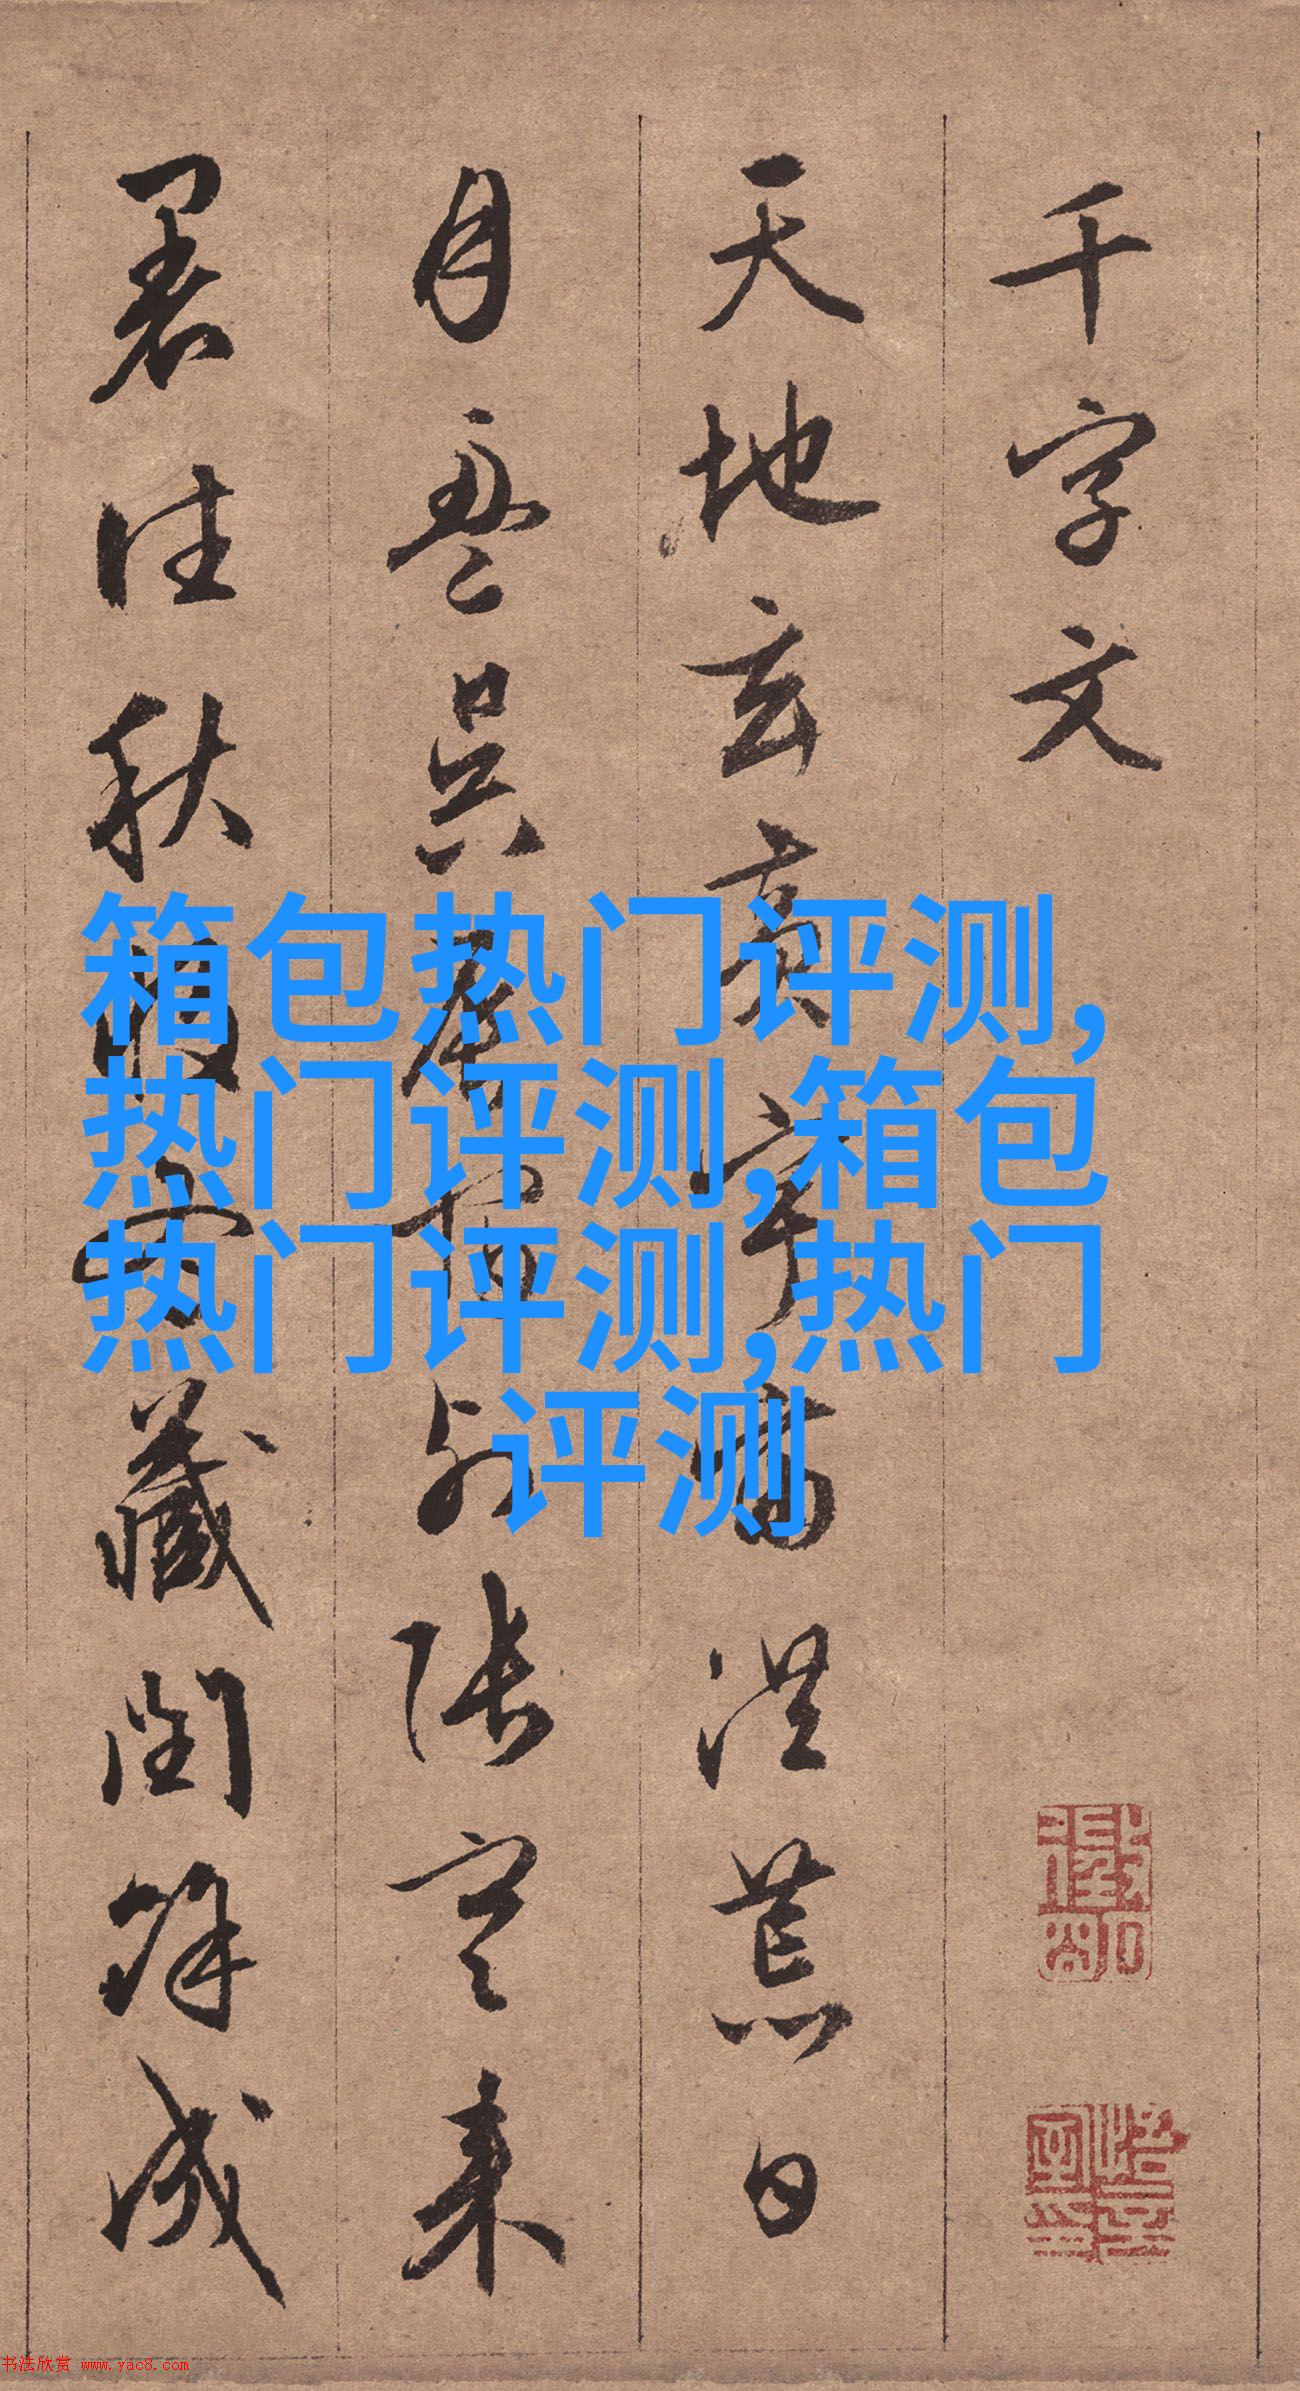 千字文
天地玄黄宇宙洪荒日
月盈昃辰宿列张寒来
暑往秋收冬藏闰余成
箱包热门评测,
热门评测,箱包
热门评测,热门
评测
书法欣赏 www.yac8.com